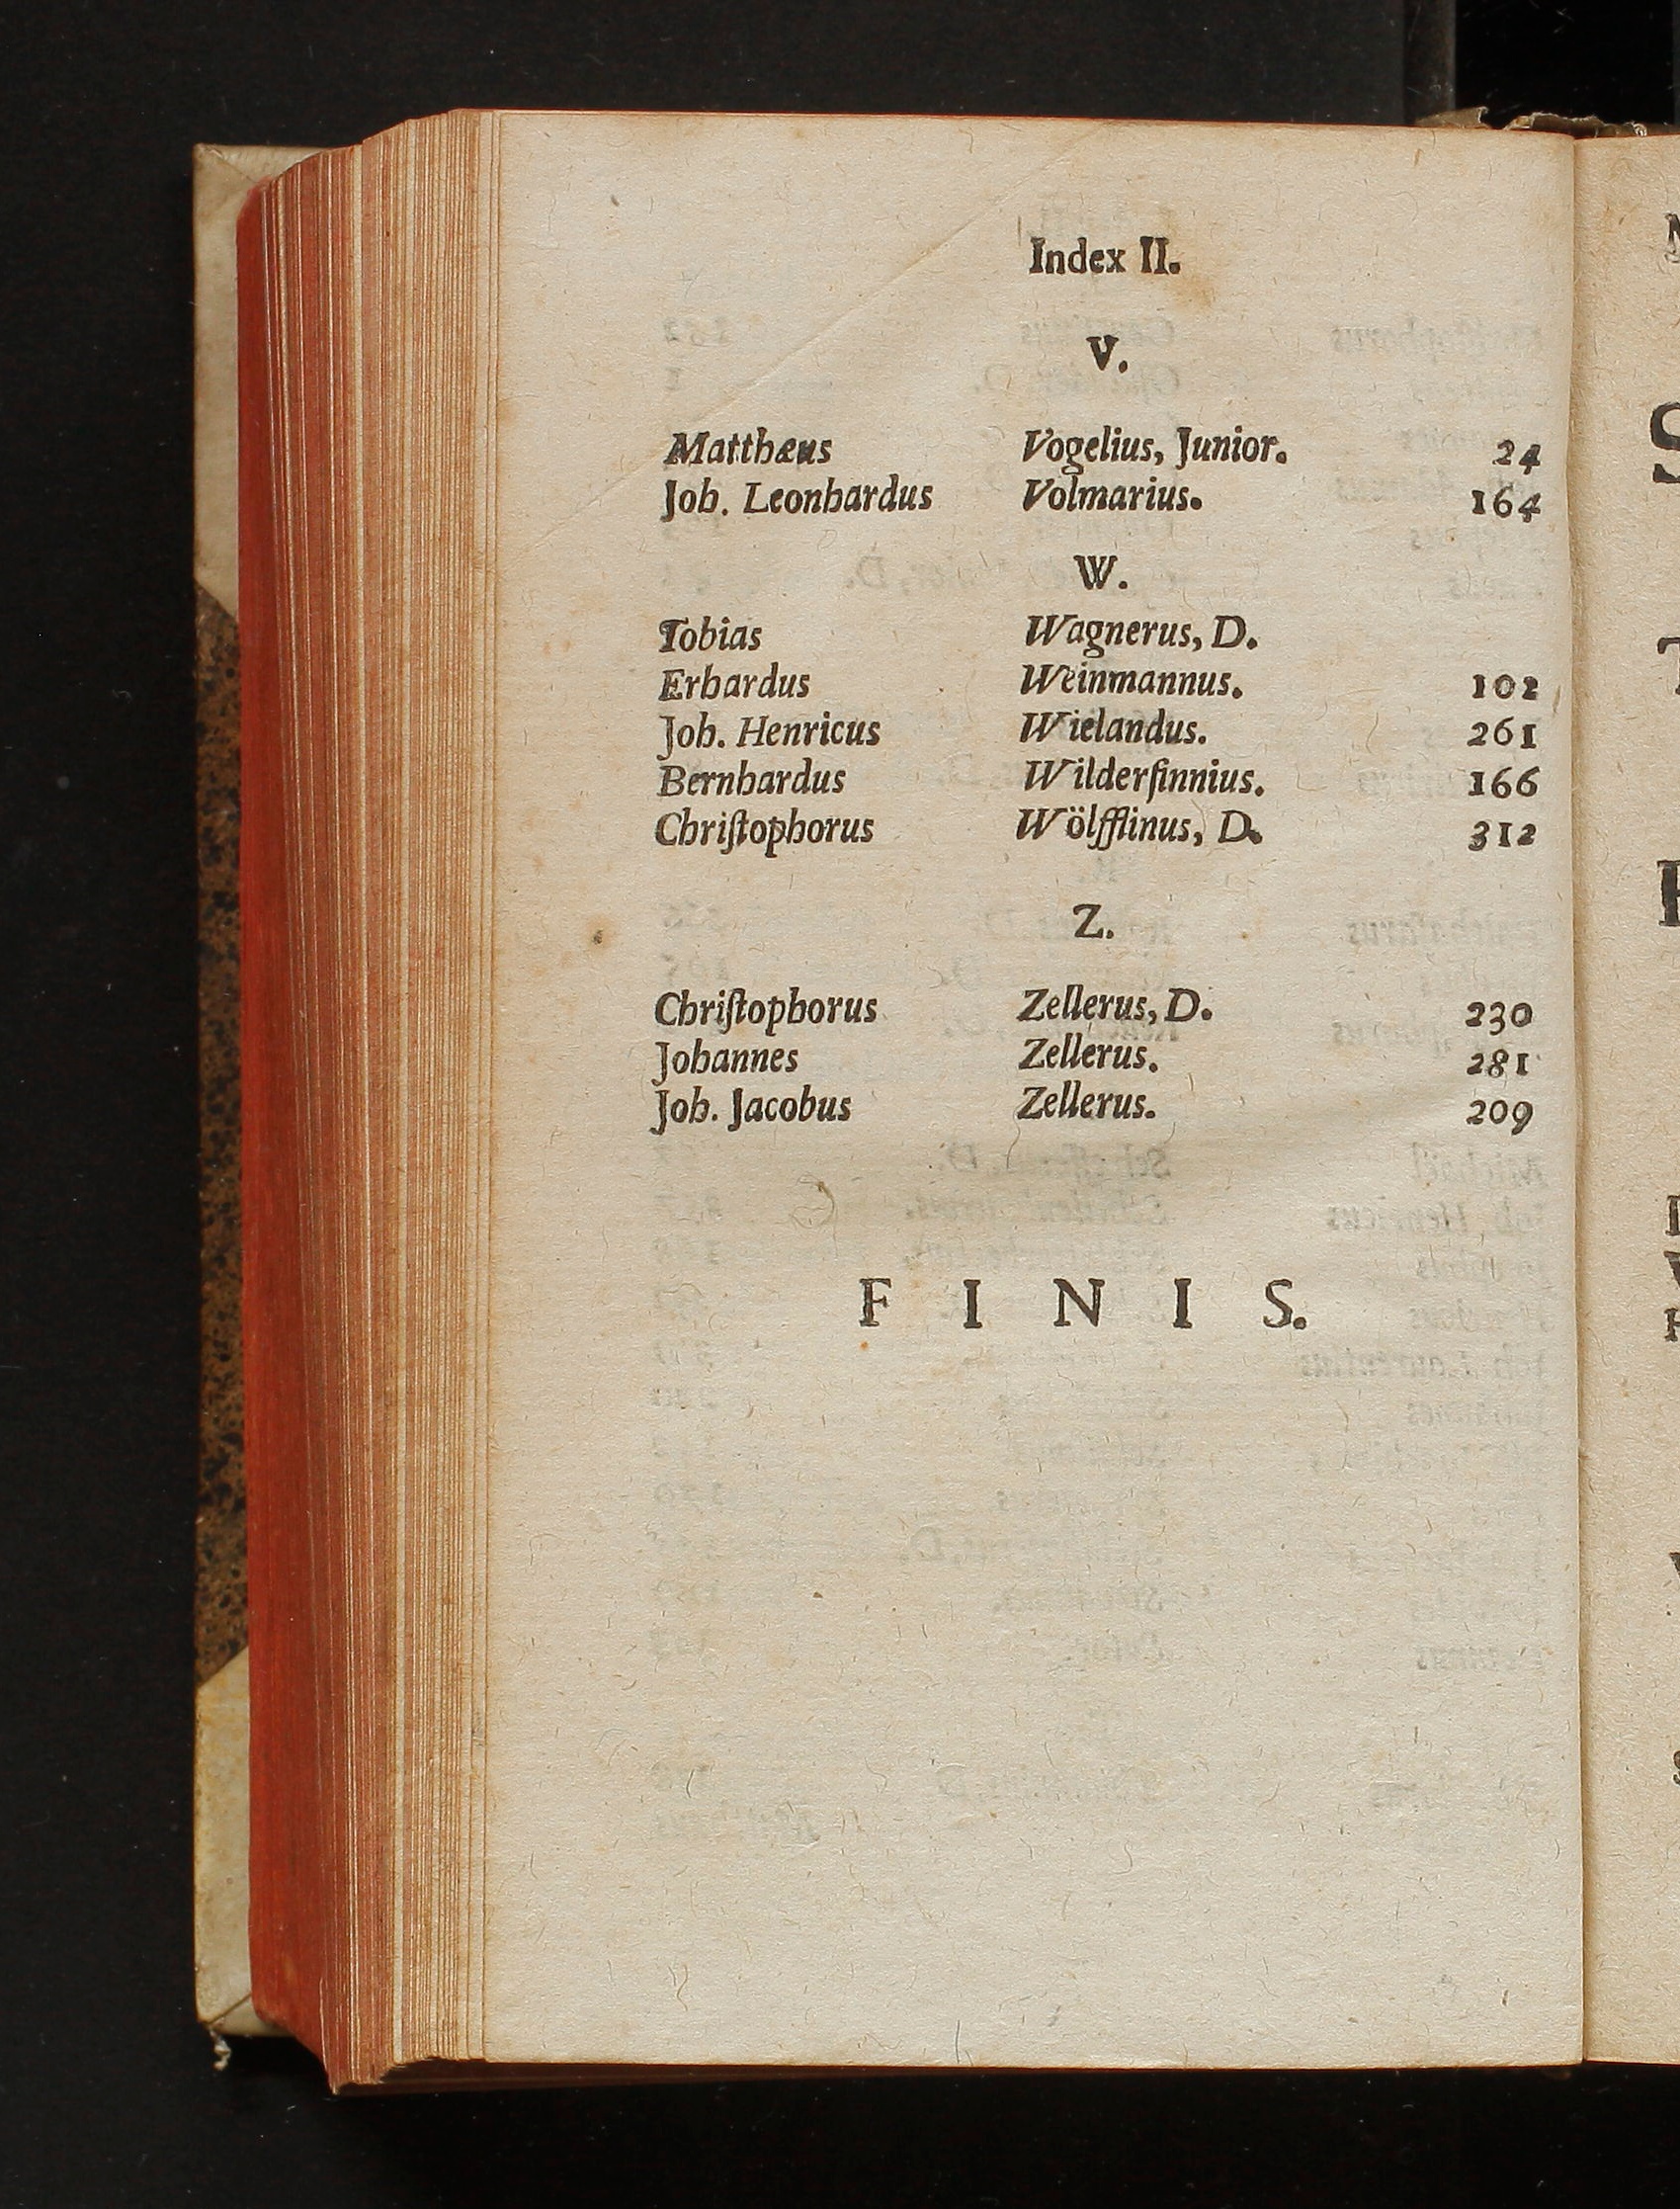 Index II.
V.
Matthæus Vogelius, Junior. 24
Joh. Leonhardus Volmarius. 164
W.
Tobias Wagnerus, D.
Erhardus Weinmannus. 102
Joh. Henricus Wielandus. 261
Bernhardus Wilderſinnius. 166
Chriſtophorus Wölfflinus, D. 312
Z.
Chriſtophorus Zellerus, D. 230
Johannes Zellerus. 281
Joh. Jacobus Zellerus. 209
F I N I S.